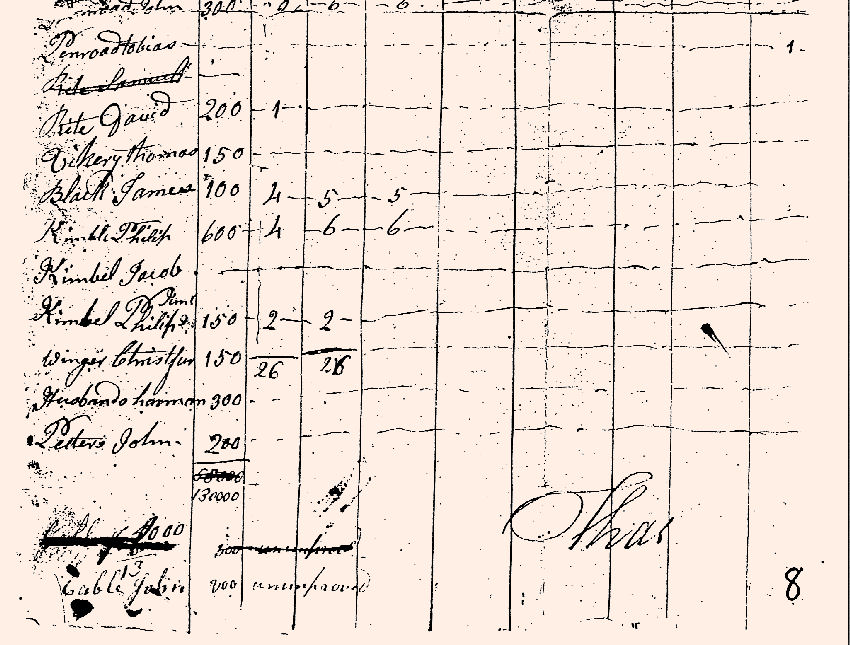 John 300 6
Penroad tobias 1.
Rite Samuel
Rite David 200 1
Vickery thomas 150
Black James 100 4 5 5
Kimble Philip 600 4 6 6
Kimbel Jacob
Kimbel Philip Junr 150 2 2
Winger Christfur 150 26 26
Husbands harman 300
Peters John 200
68000
130000
4000
300 unimproved
13
Cable John 200 unimproved
Thas
8